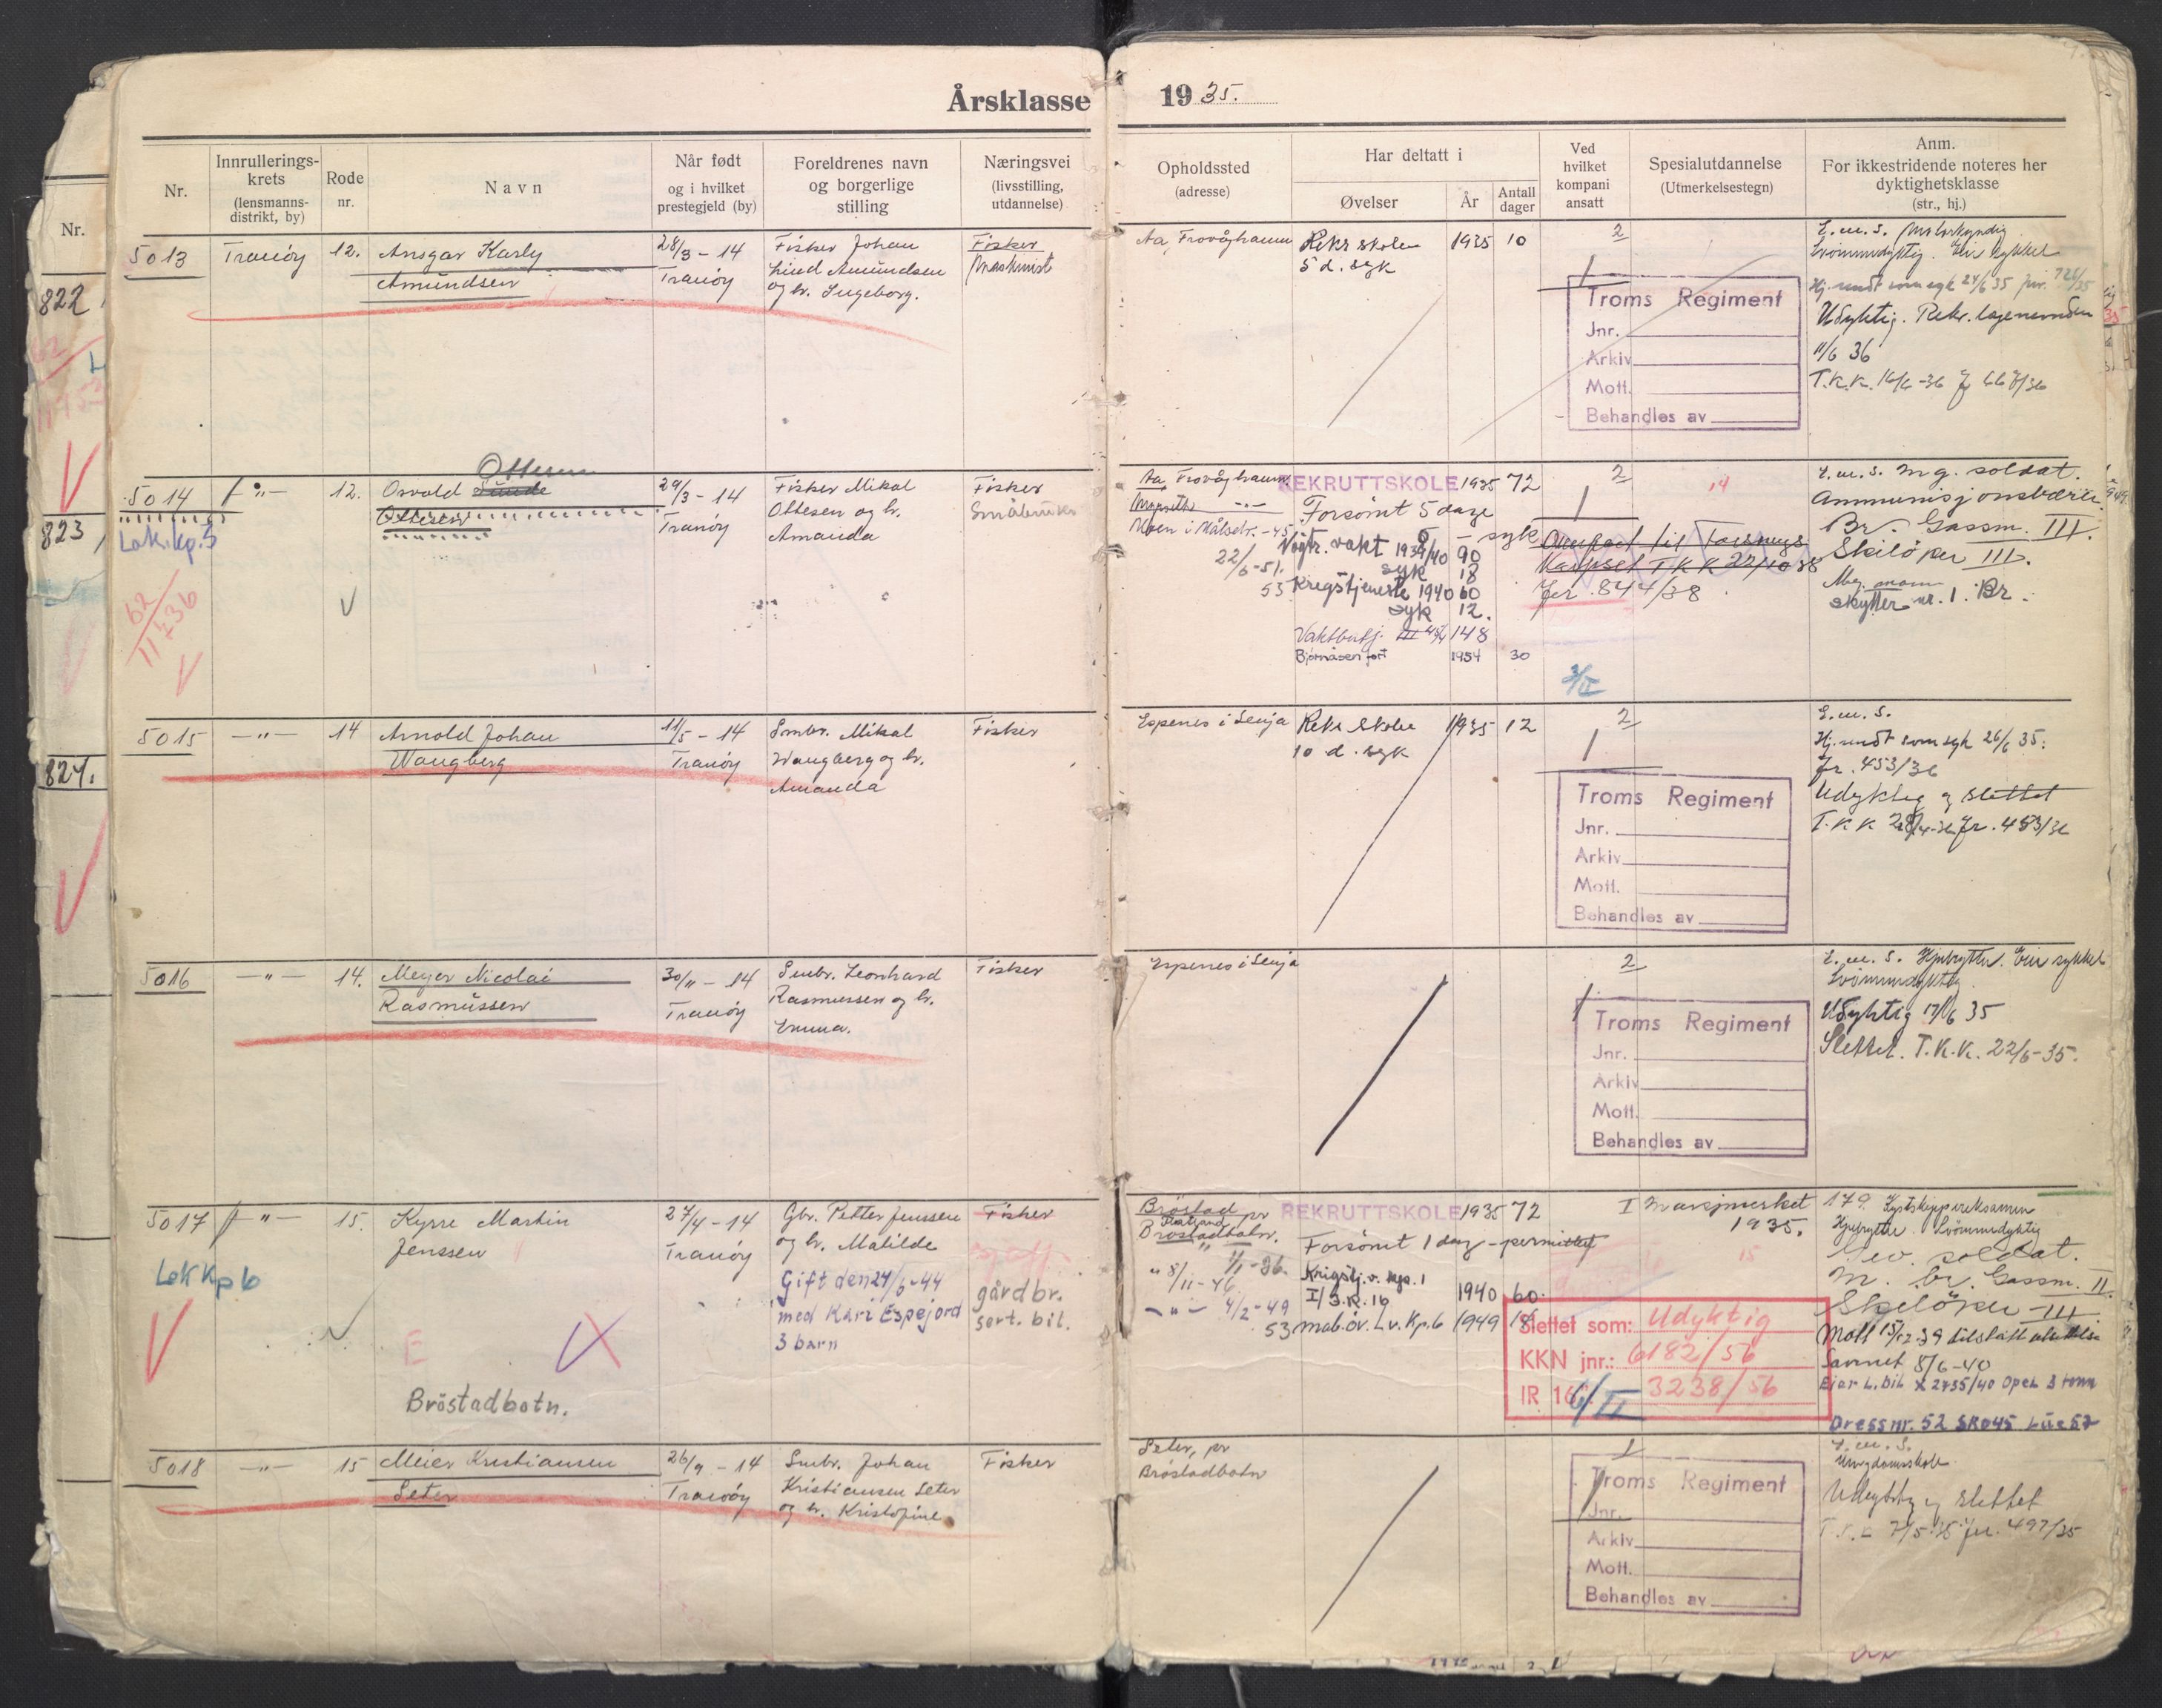 Årsklasse 1935.
Nr.
Innrullerings-
krets
(lensmanns-
distrikt, by)
Rode
nr.
Navn
Når født
og i hvilket
prestegjeld (by)
Foreldrenes navn
og borgerlige
stilling
Næringsvei
(livsstilling,
utdannelse)
Opholdssted
(adresse)
Har deltatt i
Øvelser
År
Antall
dager
Ved
hvilket
kompani
ansatt
Spesialutdannelse
(Utmerkelsestegn)
Anm.
For ikkestridende noteres her
dyktighetsklasse
(str., hj.)
Nr.
822
823
824.
5013 Tranöy 12. Ansgar Karly
Amundsen
28/3 - 14
Tranöy
Fisker Johan
Lind Amundsen
og h. Ingeborg.
Fisker
Maskinist
Aa, Frovåghamn
Rekr skolen 1935 10
5 d. syk
2
Troms Regiment
Jnr.
Arkiv
Mott.
Behandles av
E.m.s.
Svömmedyktig. Eier sykkel
Hj.sendt som syk 24/6 35
Udyktig. Rekr. legenemnden
11/6 36
T.K.K. 16/6-36
5014 -"- 12. Osvald Sunde
Ottesen
Ottesen
Lok.kp.5
62
11/7 36
29/3 - 14
Tranöy
Fisker Mikal
Ottesen og h.
Amanda
Fisker
Småbruker
Aa, Frovåghamn
Moen i Målselv. -45
22/6-51.
53
REKRUTTSKOLE 1935 72
Forsömt 5 dage
6 - syk
Nöytr. vakt 1939/40 90
syk 18
Krigstjeneste 1940 60
syk 12.
Vaktbatj. 148
Bjørnåsen fort 1954 30
2
14
T K K 22/10 38
Jr. 844/38
3/II
E.m.s. Mg. soldat.
Ammunisjonsbærer
Br. Gassm. III.
Skilöper III.
skytter nr. 1. Br.
5015 -"- 14 Arnold Johan
Wangberg
11/5 - 14
Tranöy
Smbr. Mikal
Wangberg og h.
Amanda
Fisker
Espenes i Senja
Rekr skolen 1935 12
10 d. syk
2
Troms Regiment
Jnr.
Arkiv
Mott.
Behandles av
E.m.s.
Hj.sendt som syk 26/6 35.
Jr. 453/36
Udyktig og slettet
T.K.K. Jr. 453/36
5016 -"- 14. Meyer Nicolai
Rasmussen
30/11 - 14
Tranöy
Smbr. Leonhard
Rasmussen og h.
Emma.
Fisker
Espenes i Senja
2
Troms Regiment
Jnr.
Arkiv
Mott.
Behandles av
E.m.s. Eier sykkel
Svömmedyktig
Udyktig 17/6 35
Slettet. T.K.K. 22/6-35.
5017 -"- 15. Kyrre Martin
Jenssen
Lok Kp 6
E
Bröstadbotn.
27/4 - 14
Tranöy
Gbr. Petter Jenssen
og h. Matilde
Gift den 24/6-44
med Kari Espejord
3 barn
Fisker
gårdbr.
sert. bil.
Bröstad
pr
Bröstadbotn.
" 1/1-36.
" 8/11-46
-"- 4/2-49
53
REKRUTTSKOLE 1935 72
Forsömt 1 dag - permittert
Krigstj. v. kp. 1
I/I.R. 16 1940 60.
mob.öv. Lv. Kp.6 1949 18
I Marsjmerket
1935.
15
Slettet som: Udyktig
KKN jnr.: 6182/56
IR 16 3238/56
6/II
179. Kystskippereksamen
Svömmedyktig
soldat.
M. br. Gassm. II.
Skilöper III
Savnet 8/6-40
Eier L.bil X 2735/40 Opel 3 tonn
Dress nr. 52 SKO 45 Lue 57
5018 -"- 15 Meier Kristiansen
Seter
26/9 - 14
Tranöy
Smbr. Johan
Kristiansen Seter
og h. Kristofine
Fisker
Seter, pr
Bröstadbotn
1
Troms Regiment
Jnr.
Arkiv
Mott.
Behandles av
E.m.s.
Ungdomsskole
Udyktig og slettet
7/5-35 Jnr. 497/35